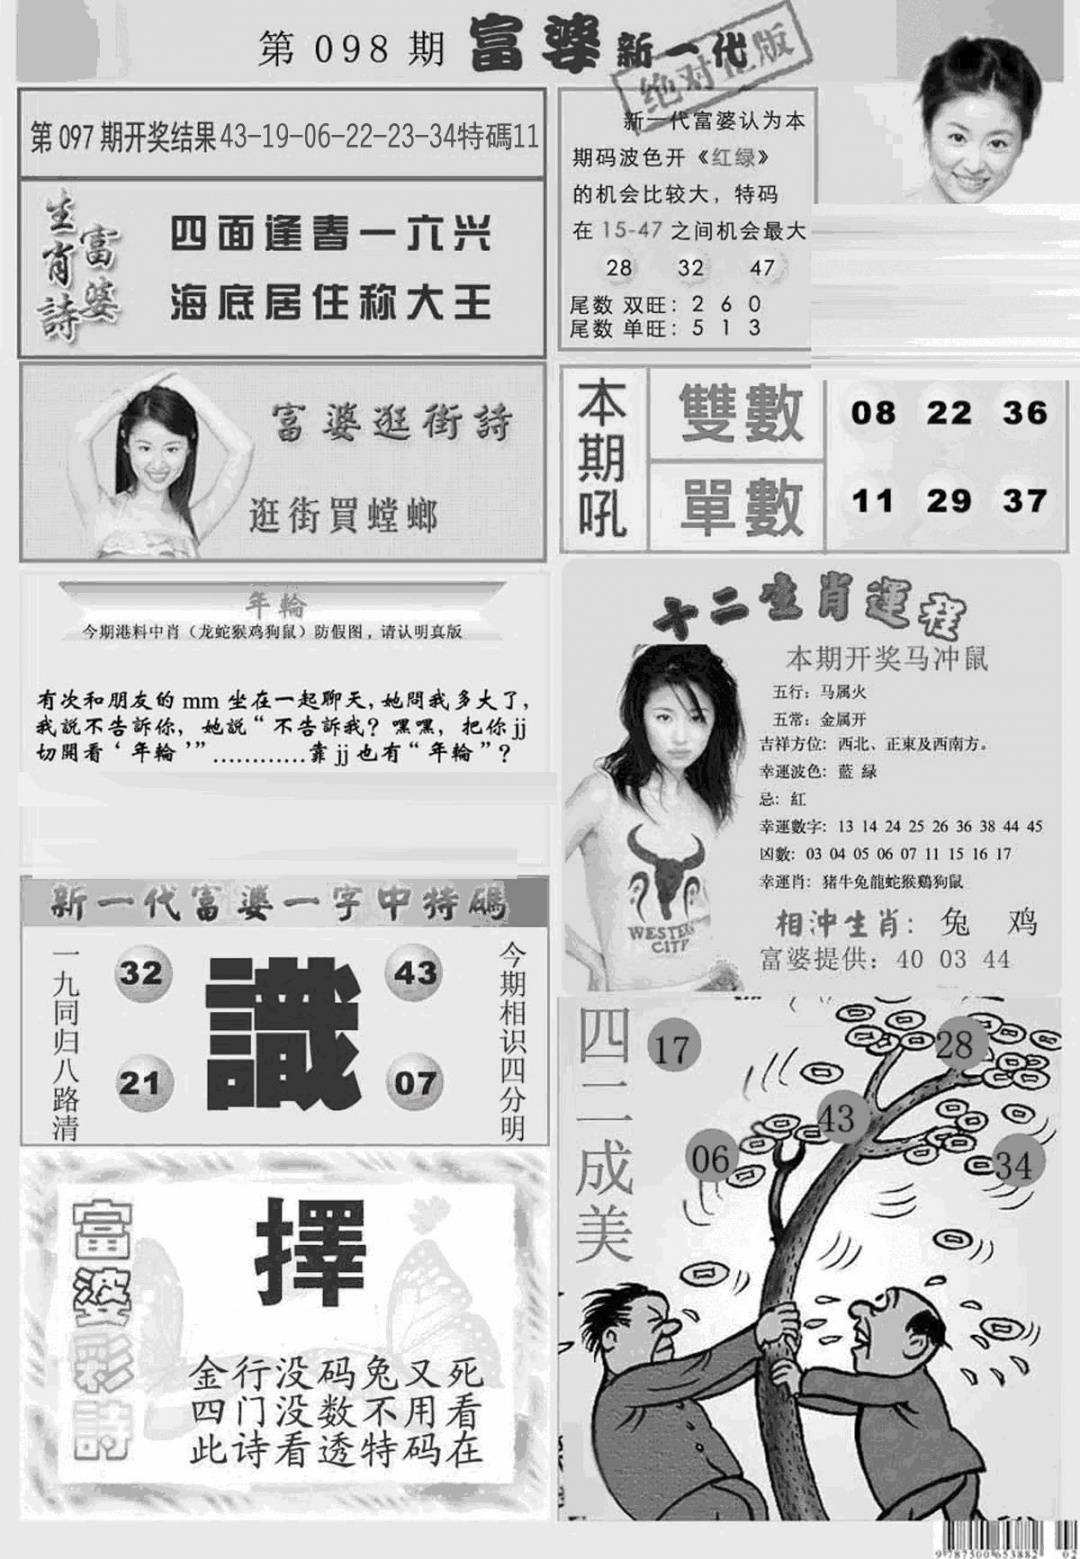 第098期 富婆新一代
绝对正版
第097期开奖结果43-19-06-22-23-34特碼11
富婆生肖詩
四面逢春一六兴
海底居住称大王
新一代富婆认为本
期码波色开《红绿》
的机会比较大，特码
在15-47之间机会最大
28 32 47
尾数 双旺：2 6 0
尾数 单旺：5 1 3
富婆逛街詩
逛街買螳螂
本期吼
雙數 08 22 36
單數 11 29 37
年輪
今期港料中肖（龙蛇猴鸡狗鼠）防假图，请认明真版
有次和朋友的mm坐在一起聊天,她問我多大了,
我説不告訴你，她説“不告訴我？嘿嘿，把你jj
切開看‘年輪’”…………靠jj也有“年輪”？
十二生肖運程
本期开奖马冲鼠
五行：马属火
五常：金属开
吉祥方位：西北、正東及西南方。
幸運波色：藍 緑
忌：紅
幸運數字：13 14 24 25 26 36 38 44 45
凶數：03 04 05 06 07 11 15 16 17
幸運肖：猪牛兔龍蛇猴鷄狗鼠
相沖生肖：兔 鸡
富婆提供：40 03 44
WESTERN
CITY
新一代富婆一字中特碼
一九同归八路清
32 43
識
21 07
今期相识四分明
四二成美
17 28
43
06 34
富婆彩詩
擇
金行没码兔又死
四门没数不用看
此诗看透特码在
9787500653882 02